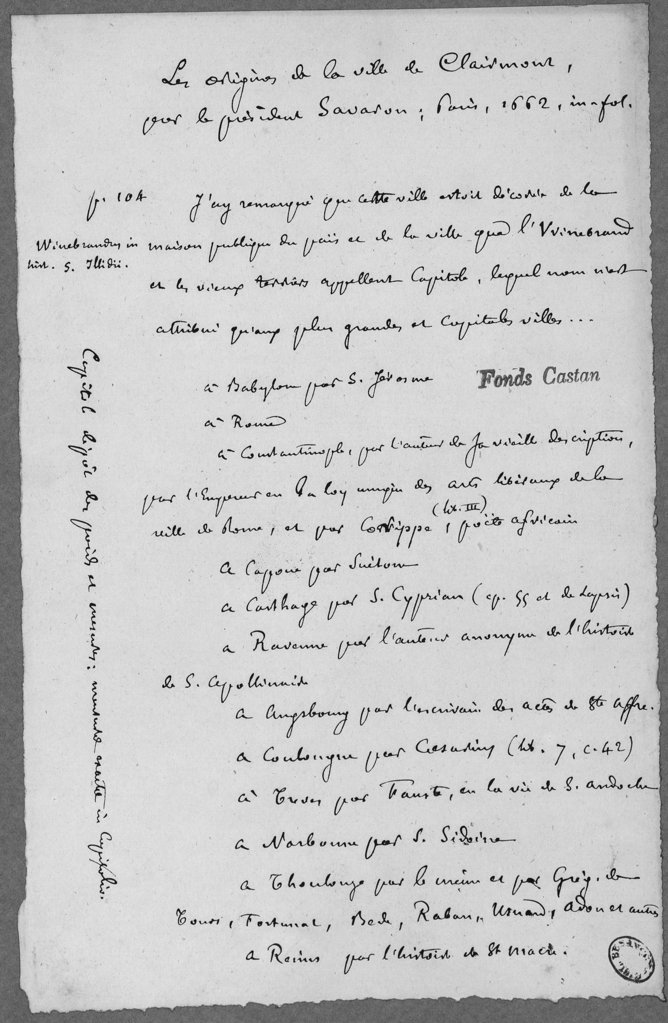 Les origines de la ville de Clairmont,
par le président Savaron ; Paris, 1662, in-fol.
p. 104 J'ay remarqué que cette ville estoit décorée de la
Winebrandus in
hist. S. Illidii.
maison publique du païs et de la ville que l'Winebrand
et les vieux terriers appellent Capitole, lequel nom n'est
attribué qu'aux plus grandes et capitales villes...
à Babylone par S. Jérosme
Fonds Castan
à Rome
à Constantinople, par l'auteur de sa vieille description,
par l'Empereur en la loy unique des arts libéraux de la
ville de Rome, et par Corippe (lib. III), poëte africain
a Capoue par Suétone
a Carthage par S. Cyprian (ep. 55 et de Lapsis)
a Ravenne par l'auteur anonyme de l'histoire
de S. Apollinaire
a Augsbourg par l'escrivain des actes de Ste Affre.
a Coulongne par Cesarius (lib. 7, c. 42)
à Treves par Fauste, en la vie de S. Andoche
a Narbonne par S. Sidoine
a Tholouze par le même et par Grég. de
Tours, Fortunat, Bede, Raban, Usuard, Adon et autres
a Reims par l'histoire de St Macre.
Capitole dépôt des poids et mesures : mensurae exactae in Capitolio.
BESANÇON